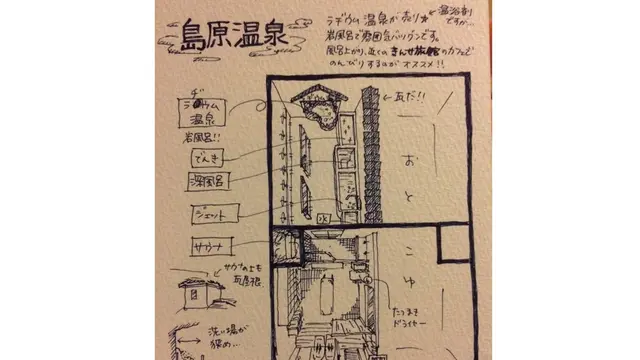 島原温泉
ラヂウム温泉が売り
温浴剤
ですが…
岩風呂で雰囲気バツグンです。
風呂上がり、並びのきんせ旅館のカフェで
のんびりするのがオススメ!!
ラヂウム
温泉
岩風呂!!
でんき
深風呂
ジェット
サウナ
サウナの上も
瓦屋根
洗い場が
狭め…
瓦だ!!
おとこ
水
ゆ
たつまき
ドライヤー